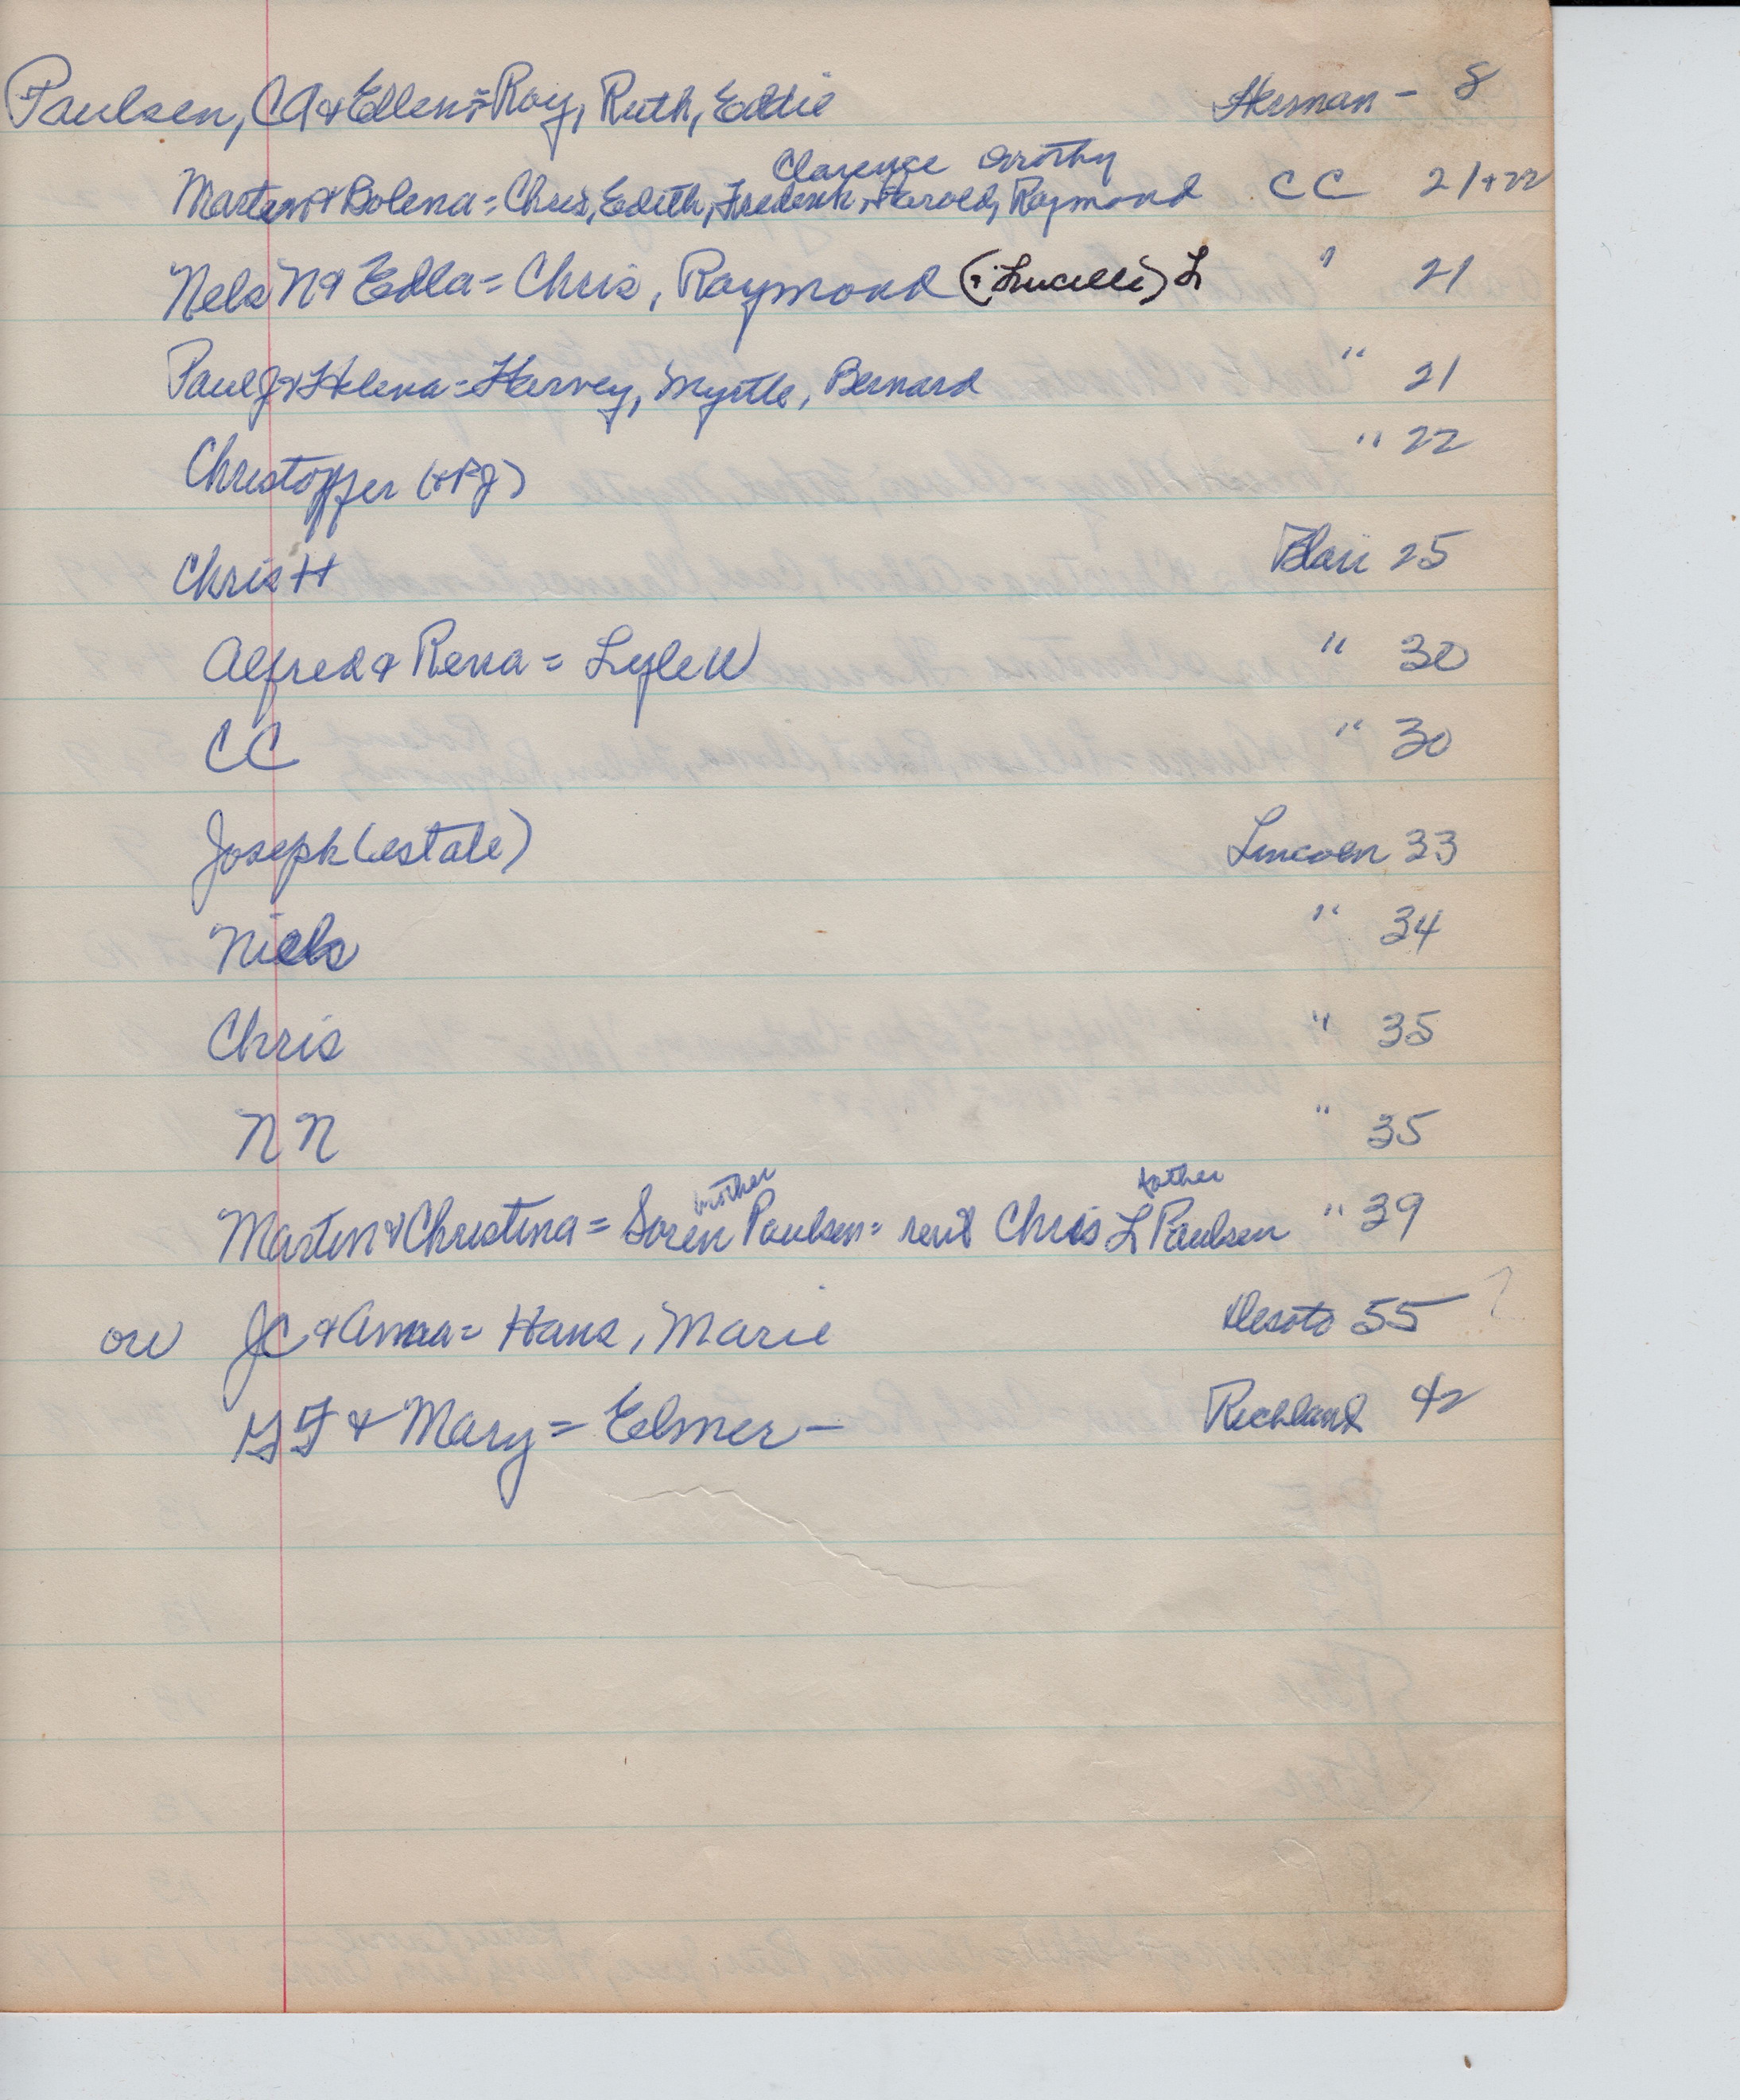 Paulsen, CA & Ellen = Ray, Ruth, Eddie Herman - 8
Clarence Dorothy
Marten & Bolena = Chris, Edith, Frederick, Harold, Raymond CC 21+22
Nels N & Edla = Chris, Raymond (& Lucille) L " 21
Paul J & Helena = Harvey, Myrtle, Bernard " 21
Christopffer (& PJ) " 22
Chris H Blair 25
Alfred & Rena = Lyle W " 30
CC " 30
Joseph (estate) Lincoln 33
Niels " 34
Chris " 35
NN " 35
brother father
Marten & Christina = Soren Paulsen = rent Chris L Paulsen " 39
ow JC & Anna = Hans, Marie Desoto 55 ?
& Mary = Elmer - Richland 42